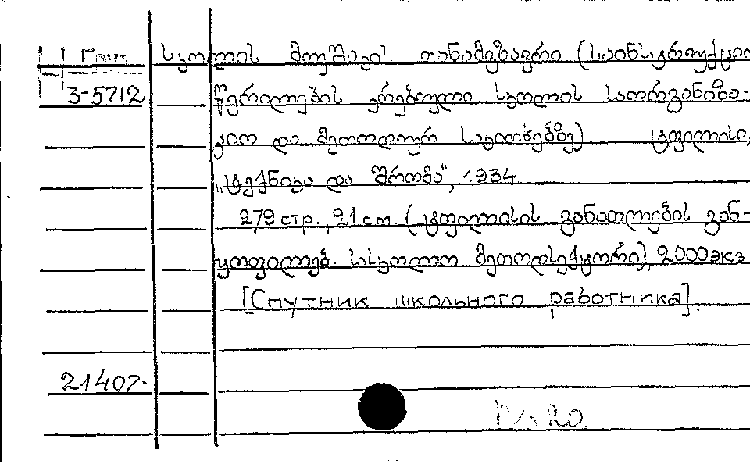 სკოლის მუშაკის თანამგზავრი (საინსტრუქციო
3-5712 წერილების კრებული სკოლის საორგანიზა-
ციო და მეთოდურ საკითხებზე) ტფილისი,
„ტექნიკა და შრომა“, 1934
272 стр., 21 cm. (ტფილისის განათლების გან-
ყოფილებ. სასკოლო მეთოდსექტორი), 2000 экз
[Спутник школьного работника].
21407-